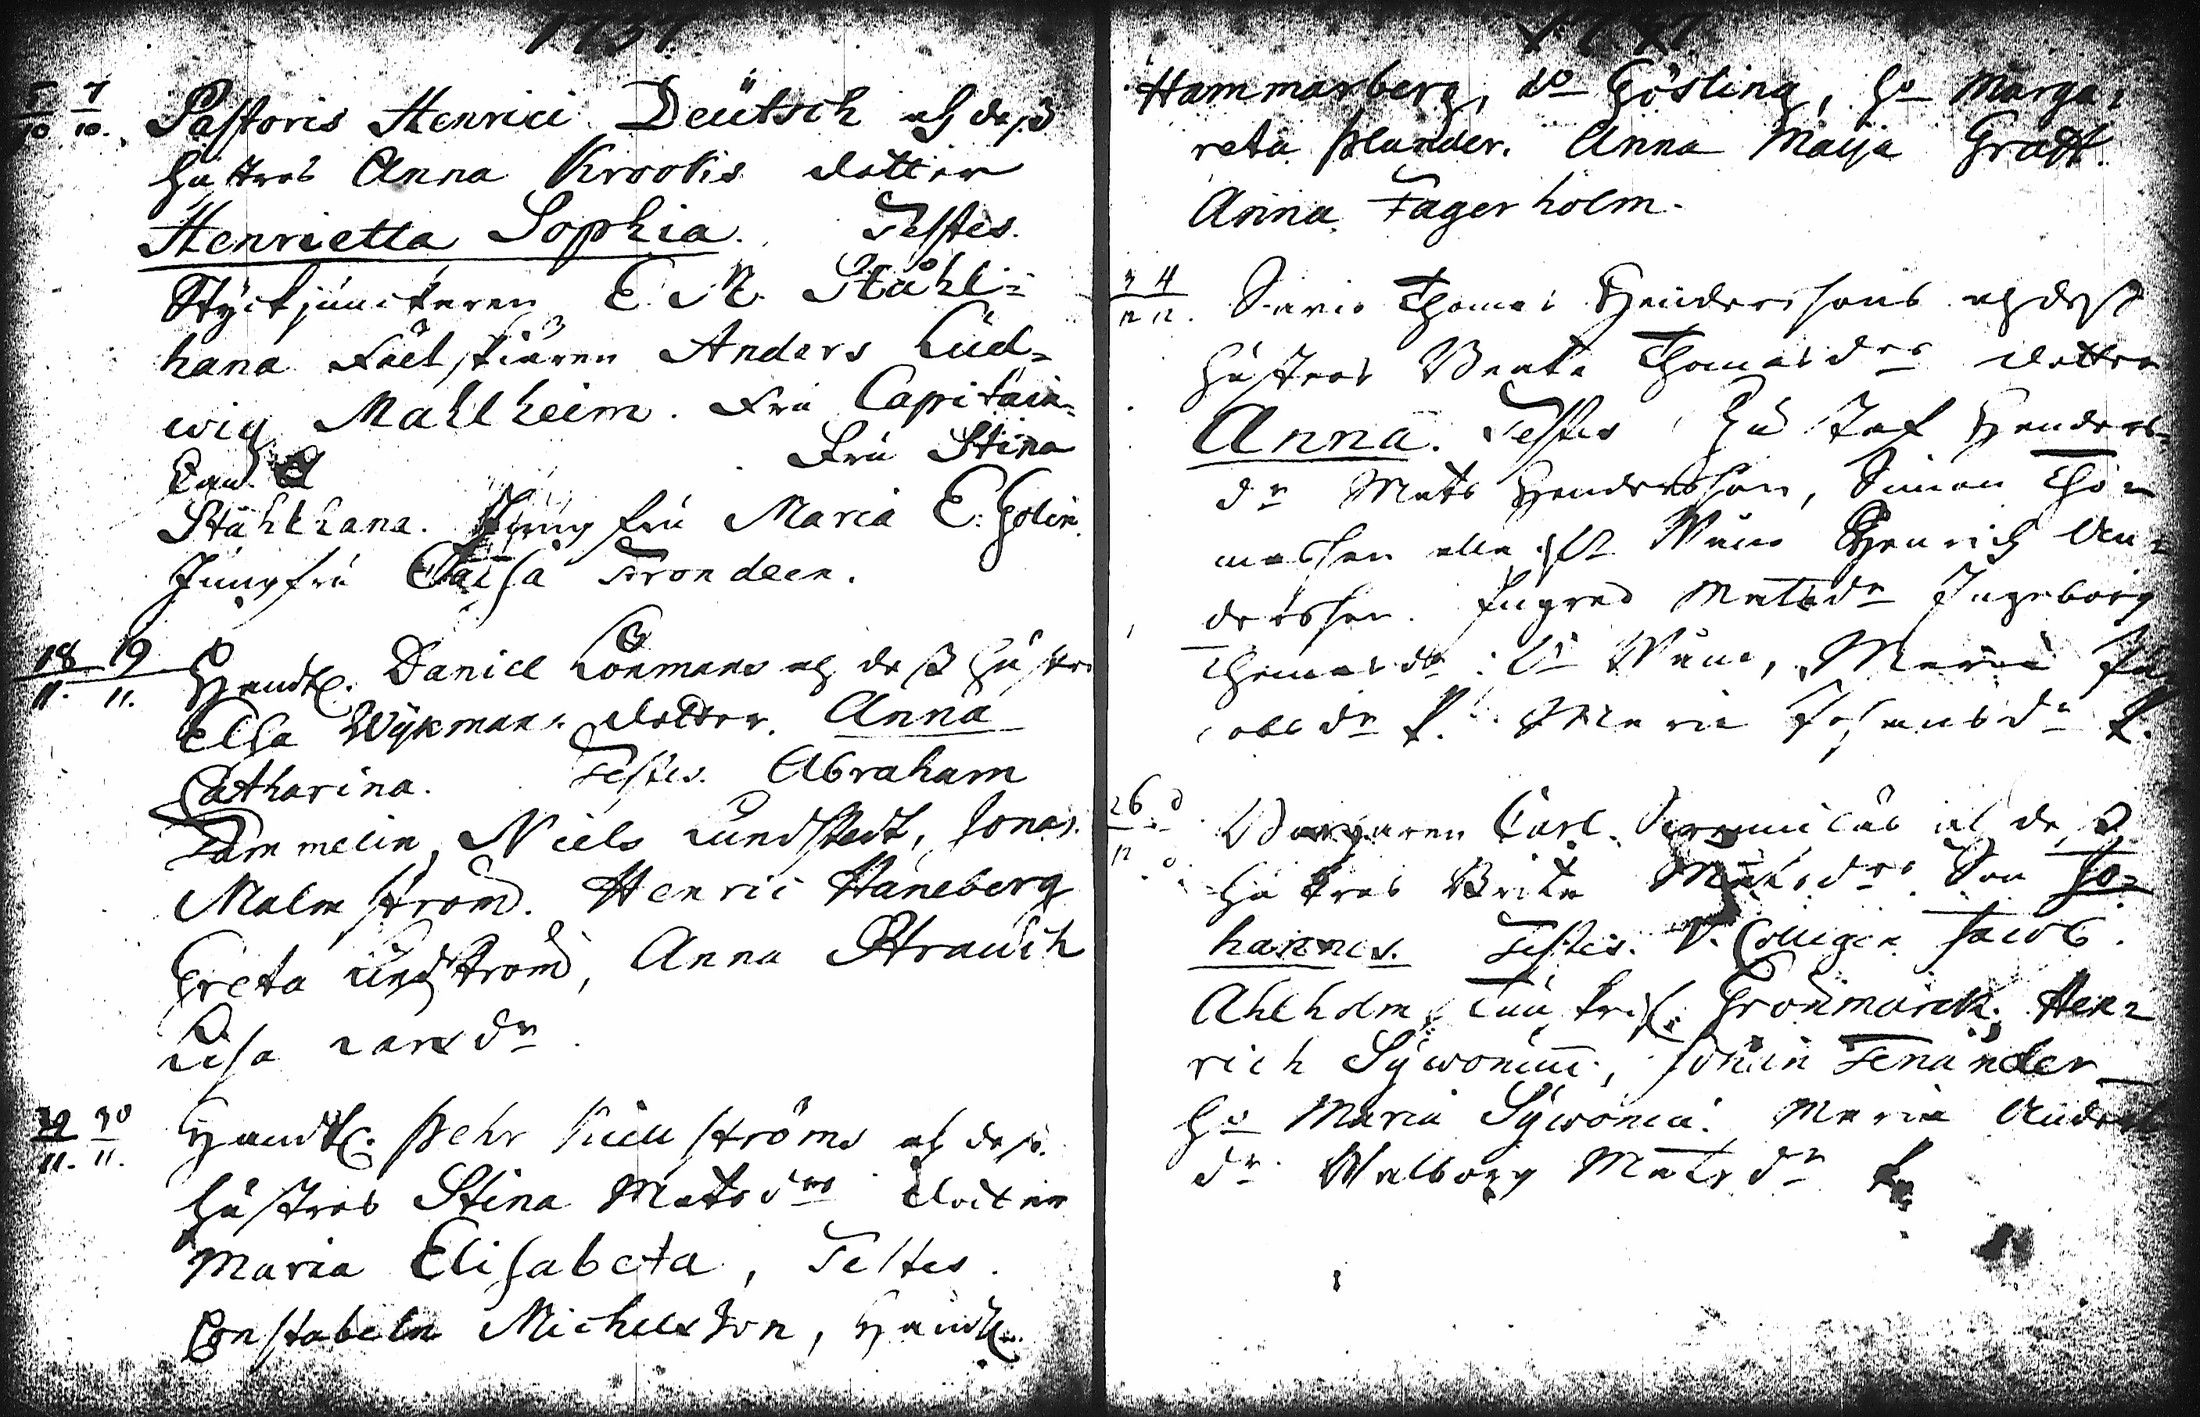 Pastoris Henrici Deutsch och dess
hustros Anna Krooks dotter
Henrietta Sophia. Testes.
Styckjunckaren E. N. Ståhl-
hana Fältskiären Anders Lud-
wig Mahlheim. Fru Capitain-
Fru Stina
Ståhlhana. Jungfru Maria E. Golin.
Jungfru Caisa Frondeen.
18 19
11. 11.
Handl. Daniel Lönmans och dess hustro
Elsa Wykmans dotter. Anna
Catharina. Testes. Abraham
Tammelin, Niels Lundstedt, Jonas
Malmström. Henric Haneberg
Greta Lindström, Anna Strauch
Lisa Larsdr
29 30
11. 11.
Handl. Pehr ströms och dess.
hustros Stina Matsdrs dotter
Maria Elisabeta, Testes.
Constabeln Michelsson, Handl.
Hammarberg, do Gösling, ho Marga-
reta Plander. Anna Maija Gratt.
Anna Fagerholm.
3 4
12 12.
Thomas Hendersons och dess
hustros Beata Thomasdrs dotter
Anna. Testes Gustaf Henders-
dr Mats Hendersson, Simon Tho-
masson Henrich An-
dersson. Ingred Matsdr Ingeborg
Thomasdr Maria Ja-
cobsdr P. Maria Johansdr P.
26 d
12 o.
Borgaren Carl och dess
hustros Brita Matsdrs Son Jo-
hannes. Testes. V. Collegen Jacob
Ahlholm, Grönmarck, Hen-
rich Sywonius, Johan Fenander
ho Maria Sywonia. Maria Anders
dr Walborg Matsdr